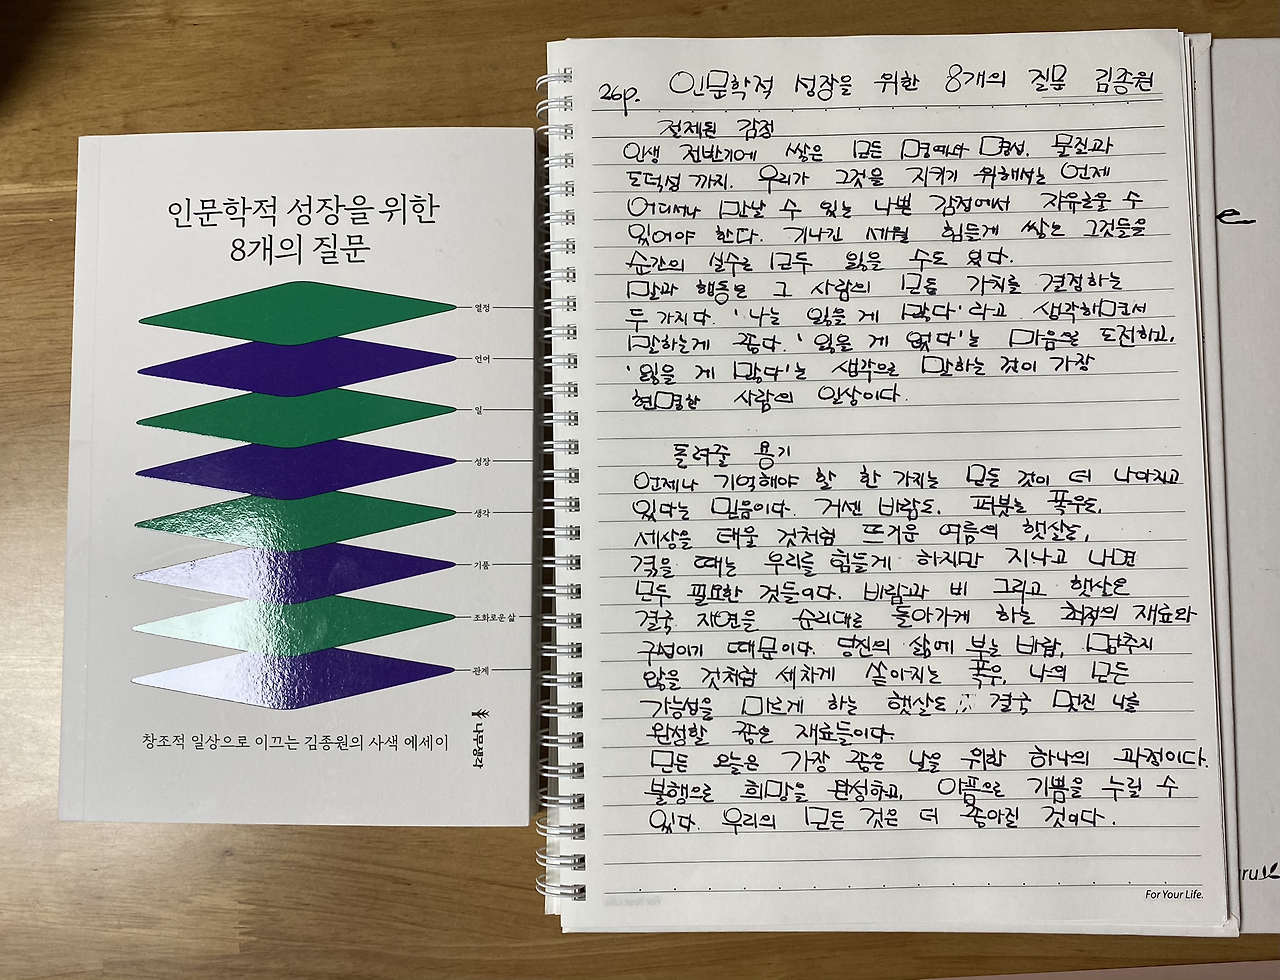 인문학적 성장을 위한
8개의 질문
열정
언어
일
성장
생각
기품
조화로운 삶
관계
나무생각
창조적 일상으로 이끄는 김종원의 사색 에세이
26p. 인문학적 성장을 위한 8개의 질문 김종원
절제된 감정
인생 전반기에 쌓은 모든 명예나 명성, 물질과
도덕성 까지. 우리가 그것을 지키기 위해서는 언제
어디서나 만날 수 있는 나쁜 감정에서 자유로울 수
있어야 한다. 기나긴 세월 힘들게 쌓은 그것들을
순간의 실수로 모두 잃을 수도 있다.
말과 행동은 그 사람의 모든 가치를 결정하는
두 가지다. '나는 잃을 게 많다'라고 생각하면서
말하는게 좋다. '잃을 게 없다'는 마음으로 도전하고,
'잃을 게 많다'는 생각으로 말하는 것이 가장
현명한 사람의 일상이다.
돌려줄 용기
언제나 기억해야 할 한 가지는 모든 것이 더 나아지고
있다는 믿음이다. 거센 바람도, 퍼붓는 폭우도,
세상을 태울 것처럼 뜨거운 여름의 햇살도,
겪을 때는 우리를 힘들게 하지만 지나고 나면
모두 필요한 것들이다. 바람과 비 그리고 햇살은
결국 자연을 순리대로 돌아가게 하는 최적의 재료와
구성이기 때문이다. 당신의 삶에 부는 바람, 멈추지
않을 것처럼 세차게 쏟아지는 폭우, 나의 모든
가능성을 마르게 하는 햇살도 결국 멋진 나를
완성할 좋은 재료들이다.
모든 오늘은 가장 좋은 날을 위한 하나의 과정이다.
불행으로 희망을 완성하고, 아픔으로 기쁨을 누릴 수
있다. 우리의 모든 것은 더 좋아질 것이다.
For Your Life.
e